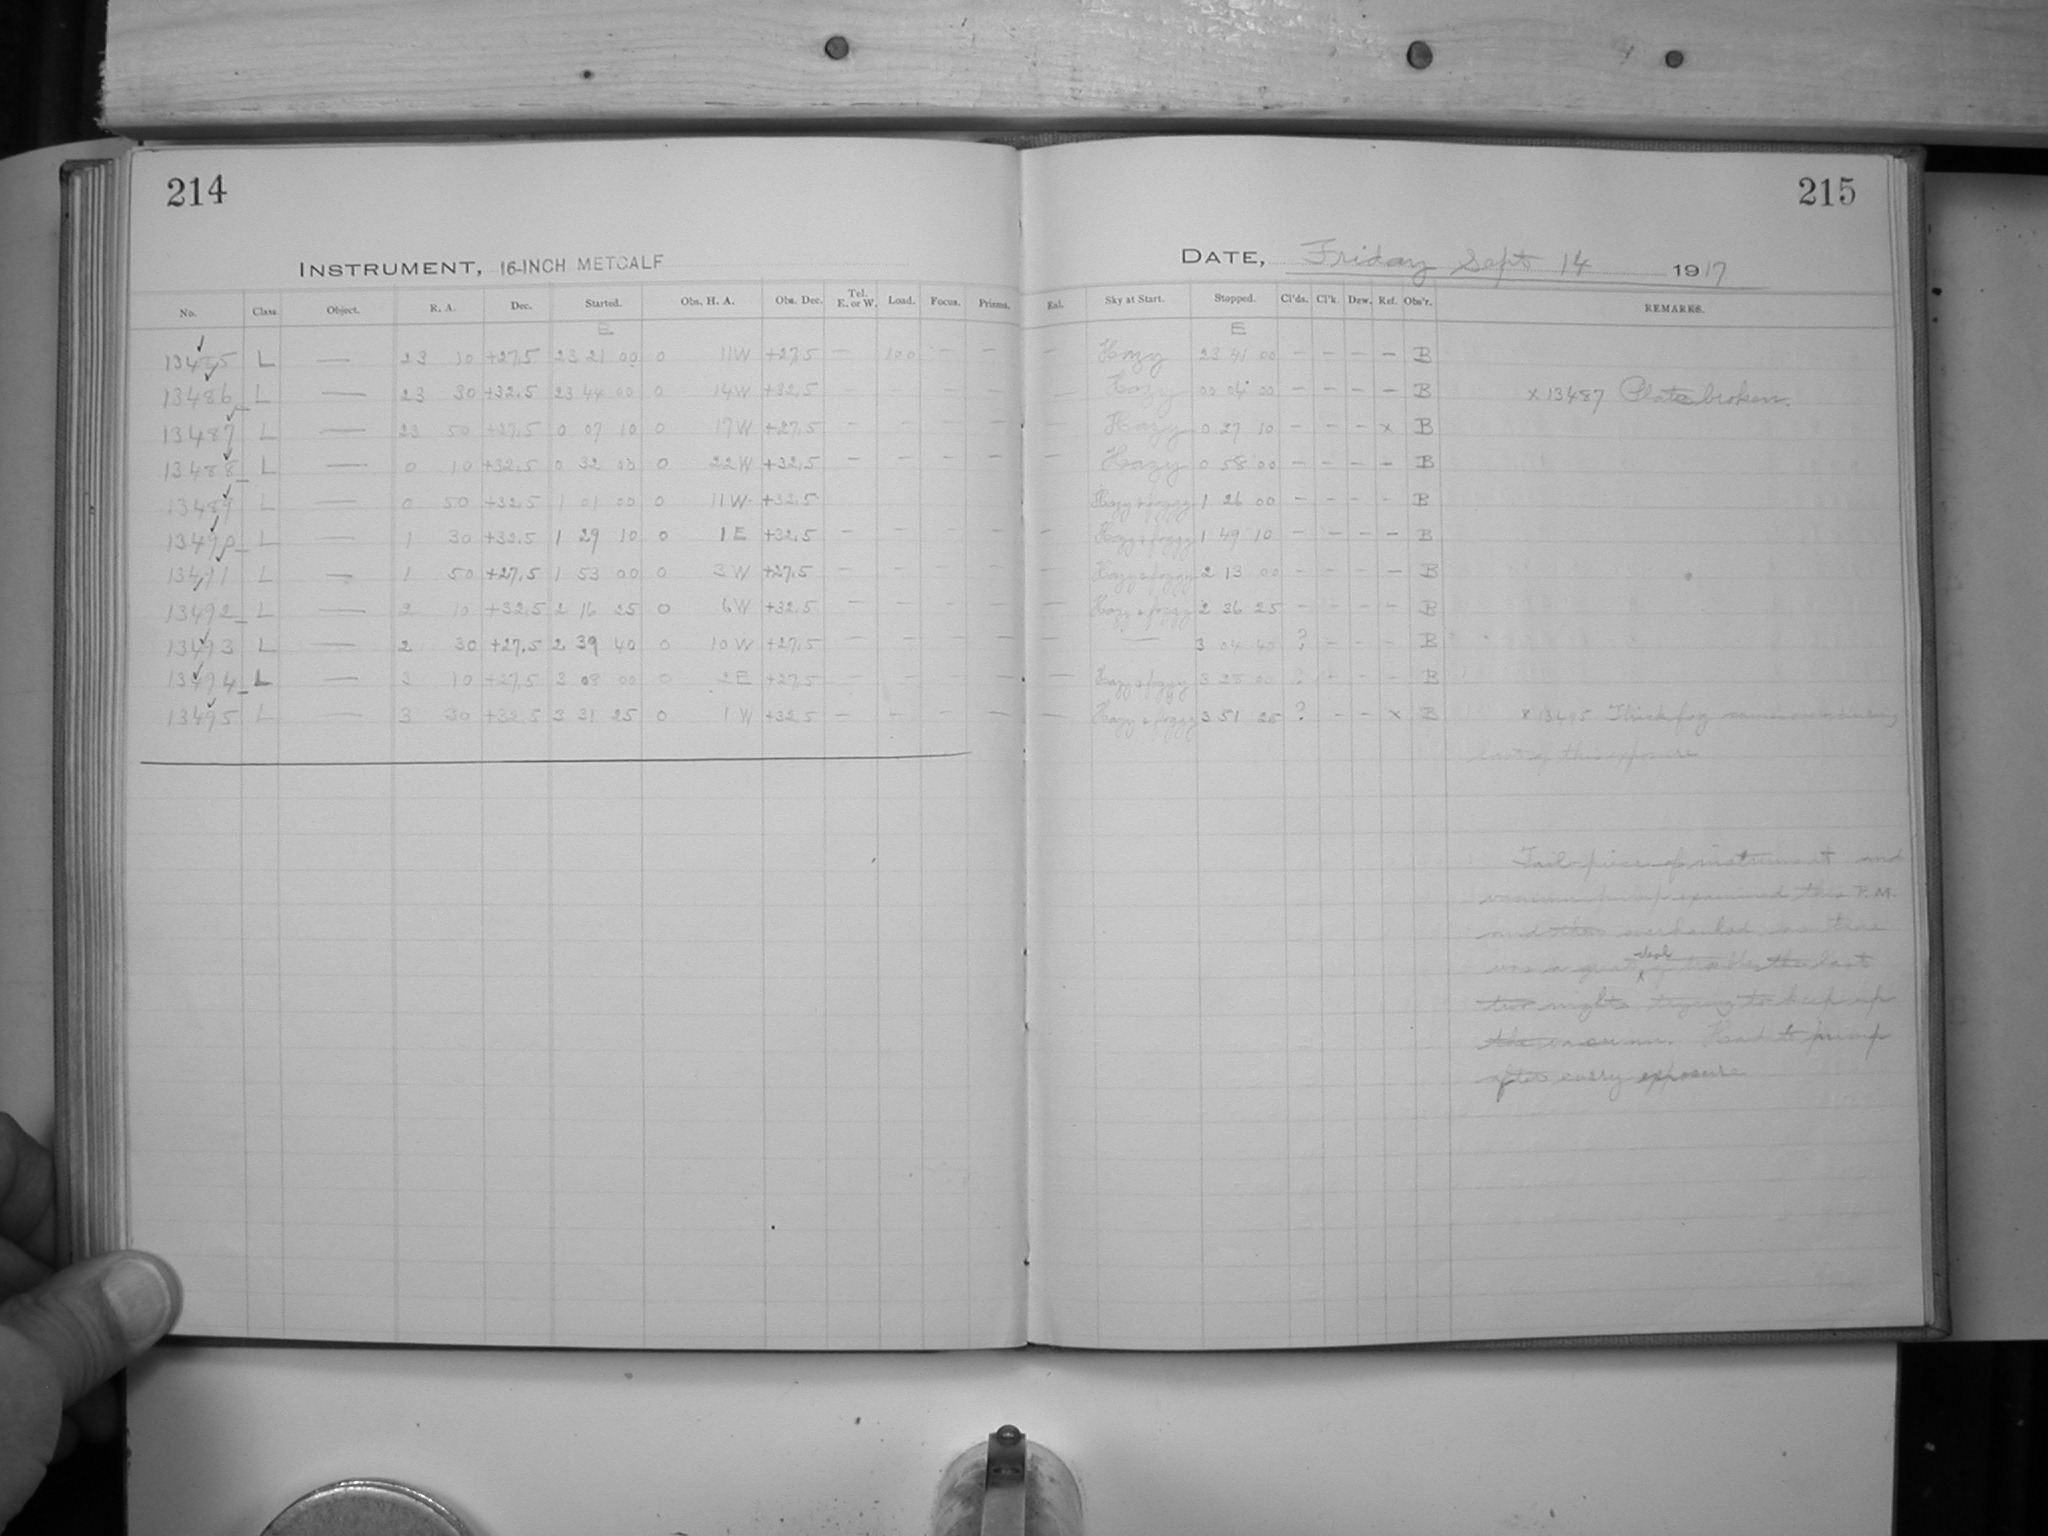 214
215
INSTRUMENT, 16-INCH METCALF
DATE, Friday Sept 14 1917
No. Class. Object. R. A. Dec. Started. Obs. H. A. Obs. Dec. Tel. E. or W. Load. Focus. Prisms. Eal. Sky at Start. Stopped. Cl'ds. Cl'k. Dew. Ref. Obs'r. REMARKS.
E E
13485 L — 23 10 +27.5 23 21 00 0 11W +27.5 — 100 — — — Hazy 23 41 00 — — — — B
13486 L — 23 30 +32.5 23 44 00 0 14W +32.5 — — — — — Hazy 00 04 00 — — — — B x 13487 Plate broken.
13487 L — 23 50 +27.5 0 07 10 0 17W +27.5 — — — — — Hazy 0 27 10 — — — x B
13488 L — 0 10 +32.5 0 32 00 0 22W +32.5 — — — — — Hazy 0 58 00 — — — — B
13489 L — 0 50 +32.5 1 01 00 0 11W +32.5 Hazy & foggy 1 26 00 — — — — B
13490 L — 1 30 +32.5 1 29 10 0 1E +32.5 — — — — — Hazy & foggy 1 49 10 — — — — B
13491 L — 1 50 +27.5 1 53 00 0 3W +27.5 — — — — — Hazy & foggy 2 13 00 — — — — B
13492 L — 2 10 +32.5 2 16 25 0 6W +32.5 — — — — — Hazy & foggy 2 36 25 — — — — B
13493 L — 2 30 +27.5 2 39 40 0 10W +27.5 — — — — — — 3 04 40 ? — — — B
13494 L — 3 10 +27.5 3 08 00 0 2E +27.5 — — — — — Hazy & foggy 3 28 00 ? — — — B
13495 L — 3 30 +32.5 3 31 25 0 1W +32.5 — — — — — Hazy & foggy 3 51 25 ? — — x B x 13495 Thick fog came over during
end of this exposure
Tail-piece of instrument and
vacuum pump examined this P.M.
and then overhauled, as there
was a great deal of trouble the last
two nights, trying to keep up
the vacuum. Had to pump
after every exposure